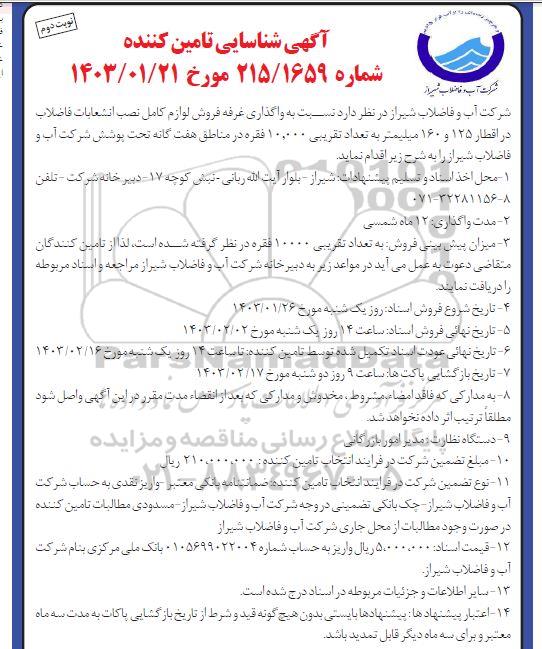 نوبت دوم
آگهی شناسایی تامین کننده
شماره ۲۱۵/۱۶۵۹ مورخ ۱۴۰۳/۰۱/۲۱
شرکت آب و فاضلاب شیراز
شرکت آب و فاضلاب شیراز در نظر دارد نسبت به واگذاری غرفه فروش لوازم کامل نصب انشعابات فاضلاب
در اقطار ۱۲۵ و ۱۶۰ میلیمتر به تعداد تقریبی ۱۰،۰۰۰ فقره در مناطق هفت گانه تحت پوشش شرکت آب و
فاضلاب شیراز را به شرح زیر اقدام نماید.
۱-محل اخذ اسناد و تسلیم پیشنهادات: شیراز - بلوار آیت الله ربانی - نبش کوچه ۱۷- دبیر خانه شرکت - تلفن
۰۷۱-۳۲۲۸۱۱۵۶-۸
۲- مدت واگذاری: ۱۲ ماه شمسی
۳- میزان پیش بینی فروش: به تعداد تقریبی ۱۰۰۰۰ فقره در نظر گرفته شده است، لذا از تامین کنندگان
متقاضی دعوت به عمل می آید در مواعد زیر به دبیرخانه شرکت آب و فاضلاب شیراز مراجعه و اسناد مربوطه
را دریافت نمایند.
۴- تاریخ شروع فروش اسناد: روز یک شنبه مورخ ۱۴۰۳/۰۱/۲۶
۵- تاریخ نهائی فروش اسناد: ساعت ۱۴ روز یک شنبه مورخ ۱۴۰۳/۰۲/۰۲
۶- تاریخ نهائی عودت اسناد تکمیل شده توسط تامین کننده: تا ساعت ۱۴ روز یک شنبه مورخ ۱۴۰۳/۰۲/۱۶
۷- تاریخ بازگشایی پاکت ها: ساعت ۹ روز دو شنبه مورخ ۱۴۰۳/۰۲/۱۷
۸- به مدارکی که فاقد امضاء، مشروط ، مخدوش و مدارکی که بعد از انقضاء مدت مقرر در این آگهی واصل شود
مطلقاً ترتیب اثر داده نخواهد شد.
۹- دستگاه نظارت: مدیر امور بازرگانی
۱۰- مبلغ تضمین شرکت در فرایند انتخاب تامین کننده: ۲۱۰،۰۰۰،۰۰۰ ریال
۱۱- نوع تضمین شرکت در فرایند انتخاب تامین کننده: ضمانتنامه بانکی معتبر - واریز نقدی به حساب شرکت
آب و فاضلاب شیراز- چک بانکی تضمینی در وجه شرکت آب و فاضلاب شیراز - مسدودی مطالبات تامین کننده
در صورت وجود مطالبات از محل جاری شرکت آب و فاضلاب شیراز
۱۲- قیمت اسناد: ۵،۰۰۰،۰۰۰ ریال واریز به حساب شماره ۰۱۰۵۶۹۹۰۲۲۰۰۴ بانک ملی مرکزی بنام شرکت
آب و فاضلاب شیراز.
۱۳- سایر اطلاعات و جزئیات مربوطه در اسناد درج شده است.
۱۴- اعتبار پیشنهاد ها : پیشنهادها بایستی بدون هیچ گونه قید و شرط از تاریخ بازگشایی پاکات به مدت سه ماه
معتبر و برای سه ماه دیگر قابل تمدید باشد.